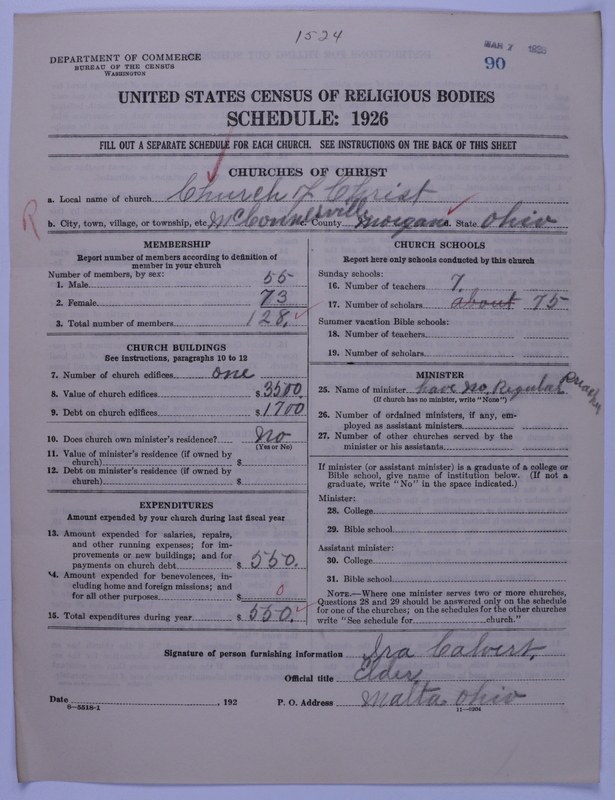 1524
DEPARTMENT OF COMMERCE
BUREAU OF THE CENSUS
WASHINGTON
MAR 7 1928
90
UNITED STATES CENSUS OF RELIGIOUS BODIES
SCHEDULE: 1926
FILL OUT A SEPARATE SCHEDULE FOR EACH CHURCH. SEE INSTRUCTIONS ON THE BACK OF THIS SHEET
CHURCHES OF CHRIST
a. Local name of church Church of Christ
R
b. City, town, village, or township, etc. McConnelsville c. County Morgan d. State Ohio
MEMBERSHIP
Report number of members according to definition of
member in your church
Number of members, by sex:
1. Male 55
2. Female 73
3. Total number of members 128.
CHURCH BUILDINGS
See instructions, paragraphs 10 to 12
7. Number of church edifices one
8. Value of church edifices $ 3500.
9. Debt on church edifices $ 1700
10. Does church own minister's residence? No
(Yes or No)
11. Value of minister's residence (if owned by
church) $
12. Debt on minister's residence (if owned by
church) $
EXPENDITURES
Amount expended by your church during last fiscal year
13. Amount expended for salaries, repairs,
and other running expenses; for im-
provements or new buildings; and for
payments on church debt $ 550.
14. Amount expended for benevolences, in-
cluding home and foreign missions; and
for all other purposes $ 0
15. Total expenditures during year $ 550.
CHURCH SCHOOLS
Report here only schools conducted by this church
Sunday schools:
16. Number of teachers 7.
17. Number of scholars about 75
Summer vacation Bible schools:
18. Number of teachers
19. Number of scholars
MINISTER
25. Name of minister have no Regular Preacher
(If church has no minister, write "None")
26. Number of ordained ministers, if any, em-
ployed as assistant ministers
27. Number of other churches served by the
minister or his assistants
If minister (or assistant minister) is a graduate of a college or
Bible school, give name of institution below. (If not a
graduate, write "No" in the space indicated.)
Minister:
28. College
29. Bible school
Assistant minister:
30. College
31. Bible school
NOTE.—Where one minister serves two or more churches,
Questions 28 and 29 should be answered only on the schedule
for one of the churches; on the schedules for the other churches
write "See schedule for church."
Signature of person furnishing information Ira Calvert,
Official title Elder,
Date , 192 P. O. Address Malta Ohio
8-5518-1 11-9204